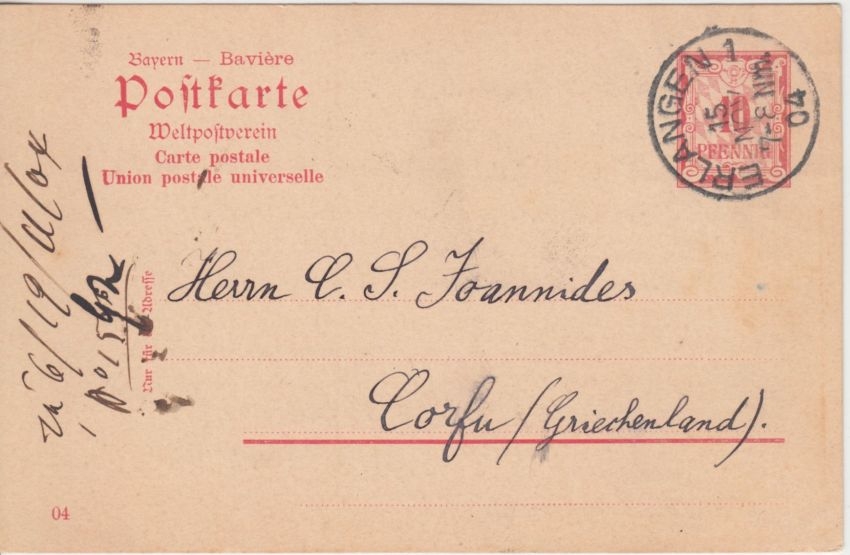 Bayern — Bavière
Postkarte
Weltpostverein
Carte postale
Union postale universelle
ERLANGEN 1
15
NOV.
NM 3-4
04
10
PFENNIG
Herrn C. S. Joannides
Corfu (Griechenland).
Nur für die Adresse
04